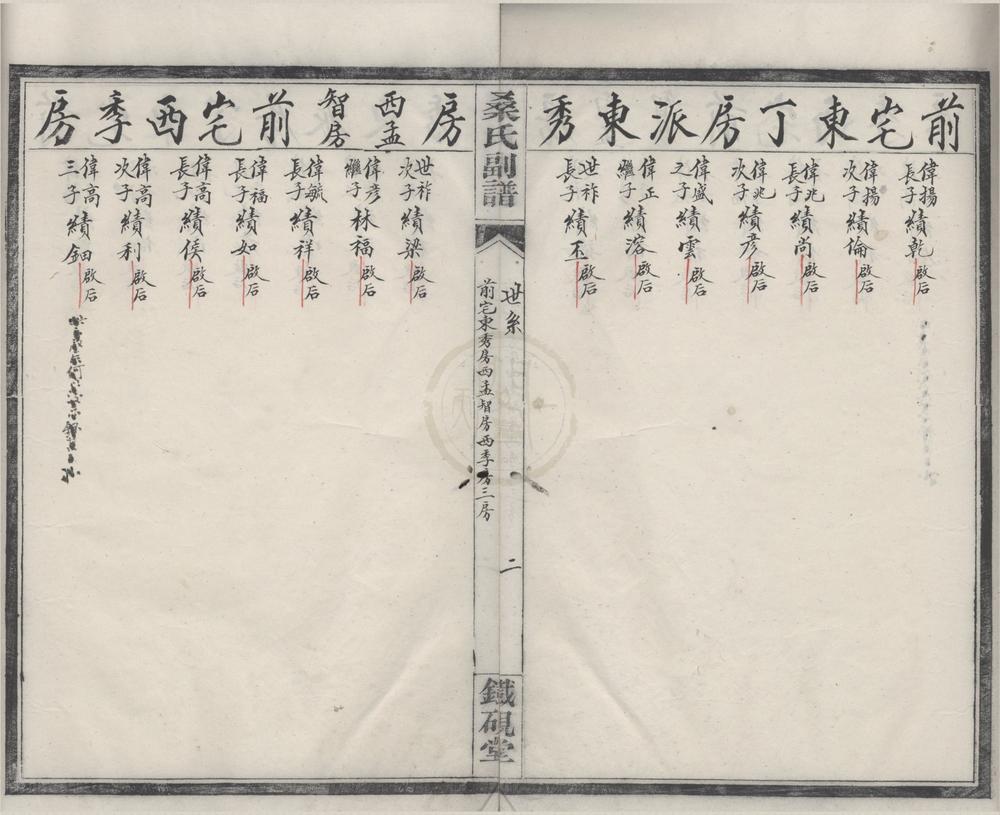 前宅東丁房派東秀
偉揚長子績乾啟后
偉揚次子績倫啟后
偉兆長子績尚啟后
偉兆次子績彥啟后
偉盛之子績雲啟后
偉正繼子績溶啟后
世祚長子績玉啟后
桑氏副譜
世系
前宅東秀房西孟智房西季房三房
二
鐵硯堂
房西孟智房前宅西季房
世祚次子績梁啟后
偉彥繼子林福啟后
偉毓長子績祥啟后
偉福長子績如啟后
偉高長子績侯啟后
偉高次子績利啟后
偉高三子績鈿啟后